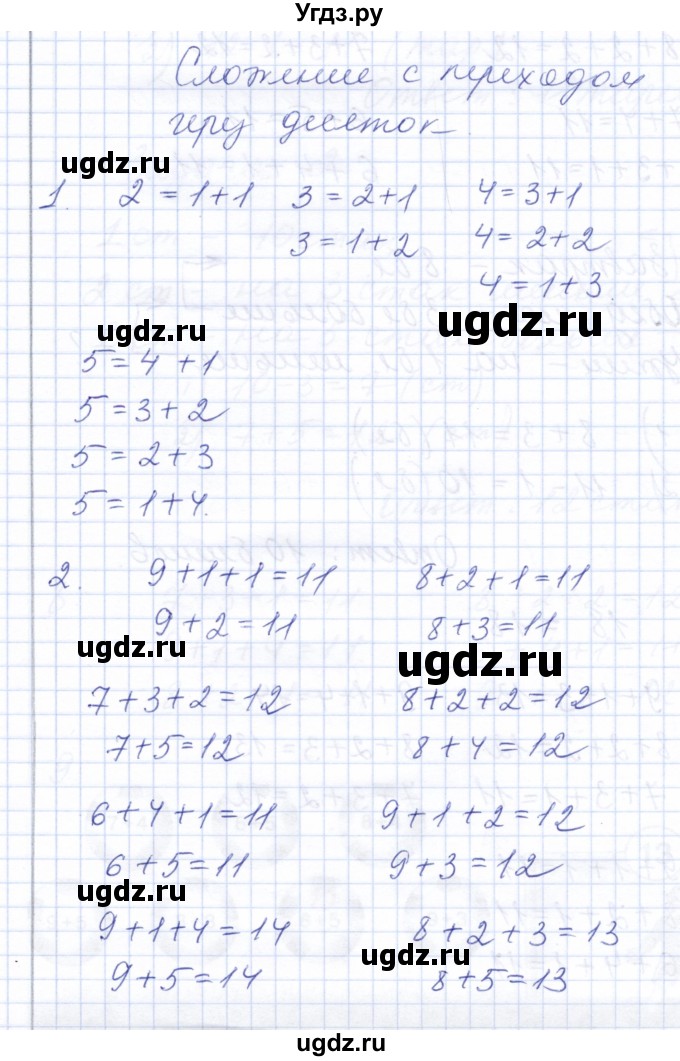 Угдз.ру
Сложение с переходом
через десяток
ugdz.ru
1. 2 = 1+1 3 = 2+1 4 = 3+1
3 = 1+2 4 = 2+2
4 = 1+3
ugdz.ru
ugdz.ru
5 = 4 + 1
5 = 3 + 2
5 = 2 + 3
5 = 1 + 4.
2. 9+1+1=11 8+2+1=11
9+2=11 8+3=11
ugdz.ru
ugdz.ru
7+3+2=12 8+2+2=12
7+5=12 8+4=12
6+4+1=11 9+1+2=12
6+5=11 9+3=12
ugdz.ru
9+1+4=14 8+2+3=13
ugdz.ru
9+5=14 8+5=13
ugdz.ru